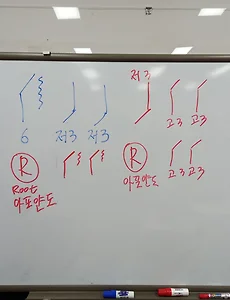 저3
6 저3 저3 고3 고3
R R 고3 고3
Root 아포얀도
아포얀도